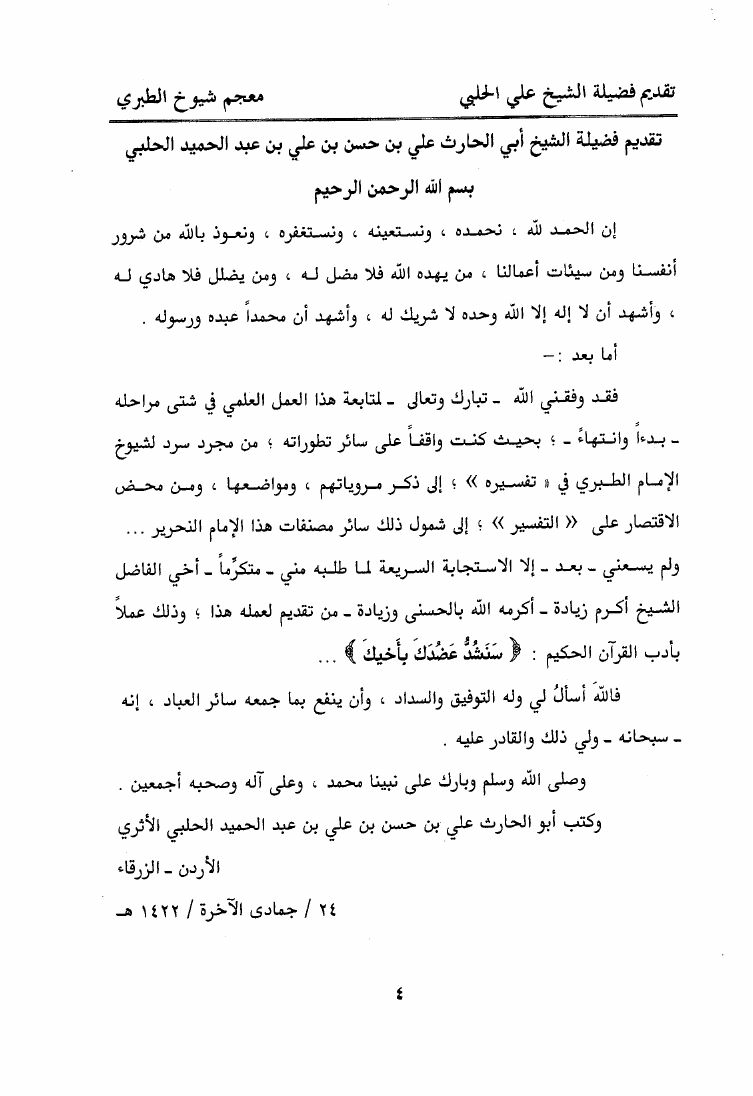 تقديم فضيلة الشيخ علي الحلبي معجم شيوخ الطبري
تقديم فضيلة الشيخ أبي الحارث علي بن حسن بن علي بن عبد الحميد الحلبي
بسم الله الرحمن الرحيم
إن الحمد لله ، نحمده ، ونستعينه ، ونستغفره ، ونعوذ بالله من شرور
أنفسنا ومن سيئات أعمالنا ، من يهده الله فلا مضل له ، ومن يضلل فلا هادي له
، وأشهد أن لا إله إلا الله وحده لا شريك له ، وأشهد أن محمداً عبده ورسوله .
أما بعد :–
فقد وفقني الله ـ تبارك وتعالى ـ لمتابعة هذا العمل العلمي في شتى مراحله
ـ بدءاً وانتهاءً ـ ؛ بحيث كنت واقفاً على سائر تطوراته ؛ من مجرد سرد لشيوخ
الإمام الطبري في « تفسيره » ؛ إلى ذكر مروياتهم ، ومواضعها ، ومن محض
الاقتصار على « التفسير » ؛ إلى شمول ذلك سائر مصنفات هذا الإمام النحرير ...
ولم يسعني ـ بعد ـ إلا الاستجابة السريعة لما طلبه مني ـ متكرِّماً ـ أخي الفاضل
الشيخ أكرم زيادة ـ أكرمه الله بالحسنى وزيادة ـ من تقديم لعمله هذا ؛ وذلك عملاً
بأدب القرآن الحكيم : ﴿ سَنَشُدُّ عَضُدَكَ بِأَخِيكَ ﴾ ...
فاللهَ أسألُ لي وله التوفيق والسداد ، وأن ينفع بما جمعه سائر العباد ، إنه
ـ سبحانه ـ ولي ذلك والقادر عليه .
وصلى الله وسلم وبارك على نبينا محمد ، وعلى آله وصحبه أجمعين .
وكتب أبو الحارث علي بن حسن بن علي بن عبد الحميد الحلبي الأثري
الأردن ـ الزرقاء
٢٤ / جمادى الآخرة / ١٤٢٢ هـ
٤